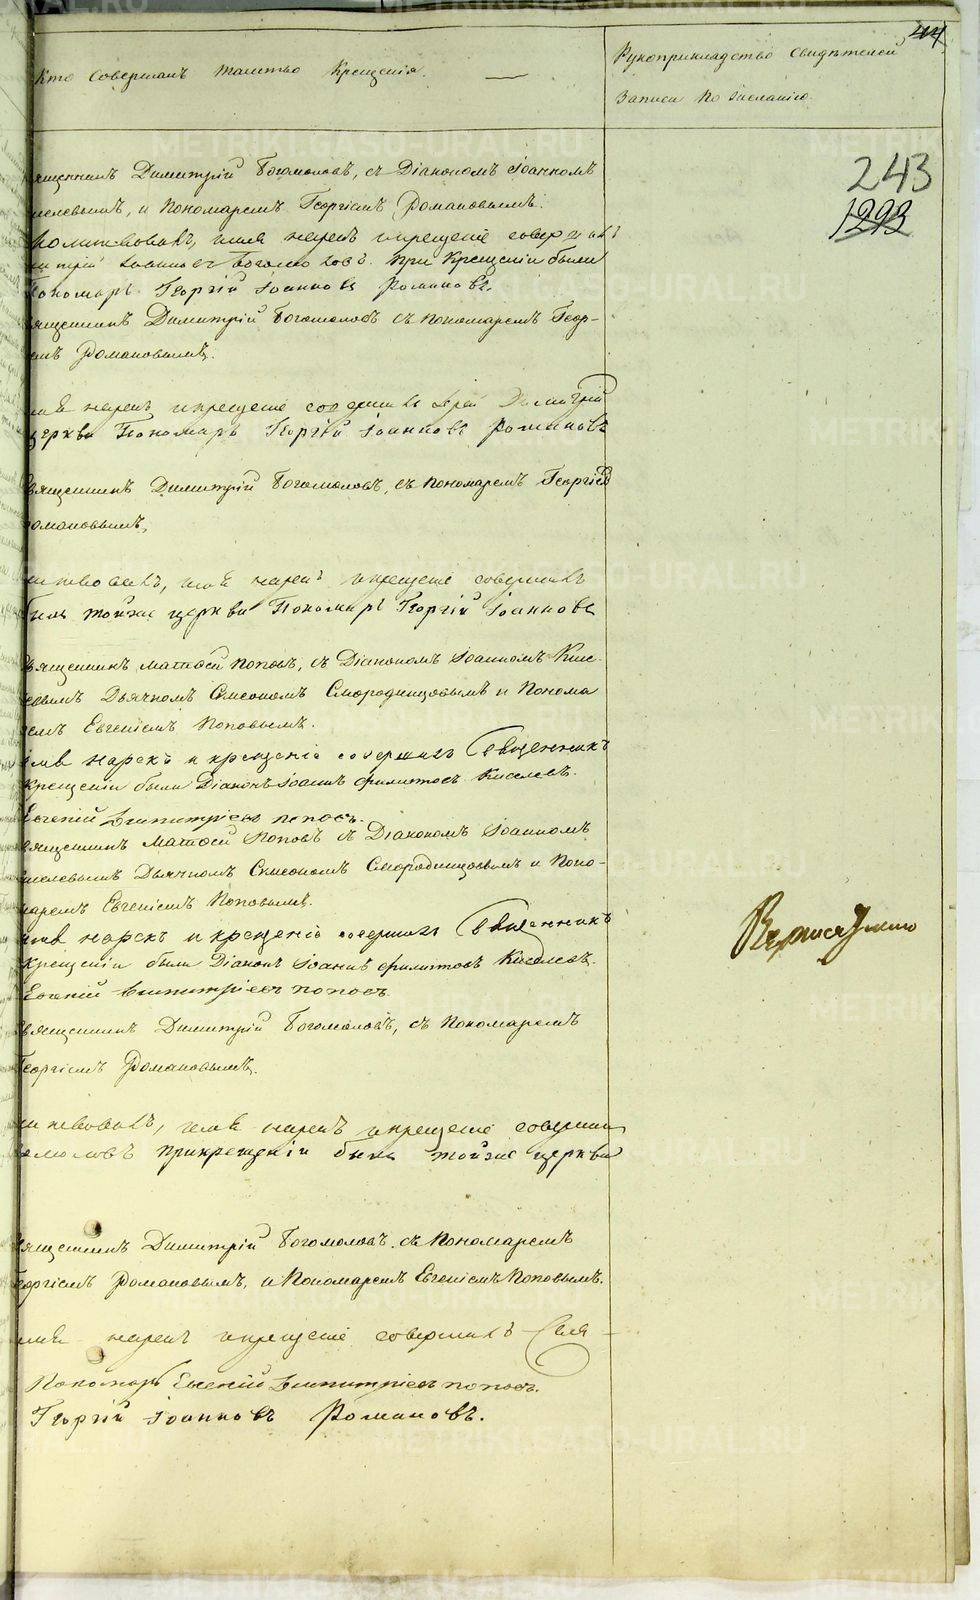 44
Кто совершалъ таинство Крещенія.
Рукоприкладство свидѣтелей
Записи по желанію.
243
1293
вященникъ Димитрій Богомоловъ, съ Діакономъ Іоанномъ
иселевымъ, и Пономаремъ Георгіемъ Романовымъ.
молитвовалъ, имя нарекъ и крещеніе совершалъ
митрій Іоанновъ Богомоловъ. При Крещеніи были
Пономарь Георгій Іоанновъ Романовъ.
вященникъ Димитрій Богомоловъ съ Пономаремъ Геор-
емъ Романовымъ.
имя нарекъ и крещеніе совершалъ Іерей Димитрій
церкви Пономарь Георгій Іоанновъ Романовъ
вященникъ Димитрій Богомоловъ, съ Пономаремъ Георгіем
омановымъ,
литвовалъ, имя нарекъ и крещеніе совершалъ
былъ тойже церкви Пономарь Георгій Іоанновъ
вященникъ Матѳей Поповъ, съ Діакономъ Іоанномъ Кис-
евымъ Дьячкомъ Симеономъ Смородинцовымъ и Понома
емъ Евгеніемъ Поповымъ.
имя нарекъ и крещеніе совершалъ Священникъ
крещеніи были Діаконъ Іоаннъ Филиповъ Киселевъ.
Евгеній Димитріевъ Поповъ.
вященникъ Матѳей Поповъ съ Діакономъ Іоанномъ
иселевымъ Дьячкомъ Симеономъ Смородинцовымъ и Поно-
маремъ Евгеніемъ Поповымъ.
имя нарекъ и крещеніе совершалъ Священникъ
крещеніи были Діаконъ Іоаннъ Филиповъ Киселевъ.
Евгеній Димитріевъ Поповъ.
вященникъ Димитрій Богомоловъ, съ Пономаремъ
Георгіемъ Романовымъ.
литвовалъ, имя нарекъ и крещеніе соверши
омоловъ При крещеніи былъ тойже церкви
вященникъ Димитрій Богомоловъ съ Пономаремъ
еоргіемъ Романовымъ, и Пономаремъ Евгеніемъ Поповымъ.
имя нарекъ и крещеніе совершалъ Свя-
Пономарь Евгеній Димитріевъ Поповъ.
Георгій Іоанновъ Романовъ.
METRIKI.GASO-URAL.RU